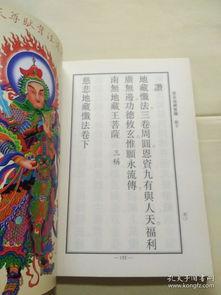 讚
地藏懺法三卷周圓恩資九有與人天福利
廣無邊功德攸玄惟願永流傳
南無地藏王菩薩 三稱
慈悲地藏懺法卷下
天尊馱韋
孔夫子旧书网